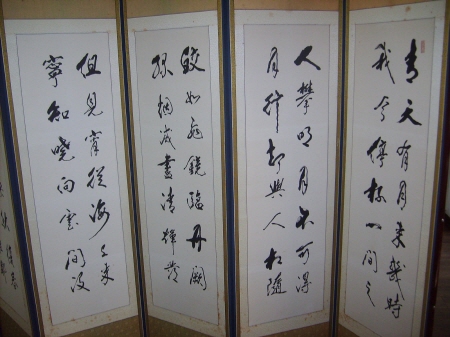 青天有月来幾時
我今停杯一問之
人攀明月不可得
月行却與人相隨
皎如飛鏡臨丹闕
綠烟滅盡清輝發
但見宵從海上来
寧知曉向雲間没